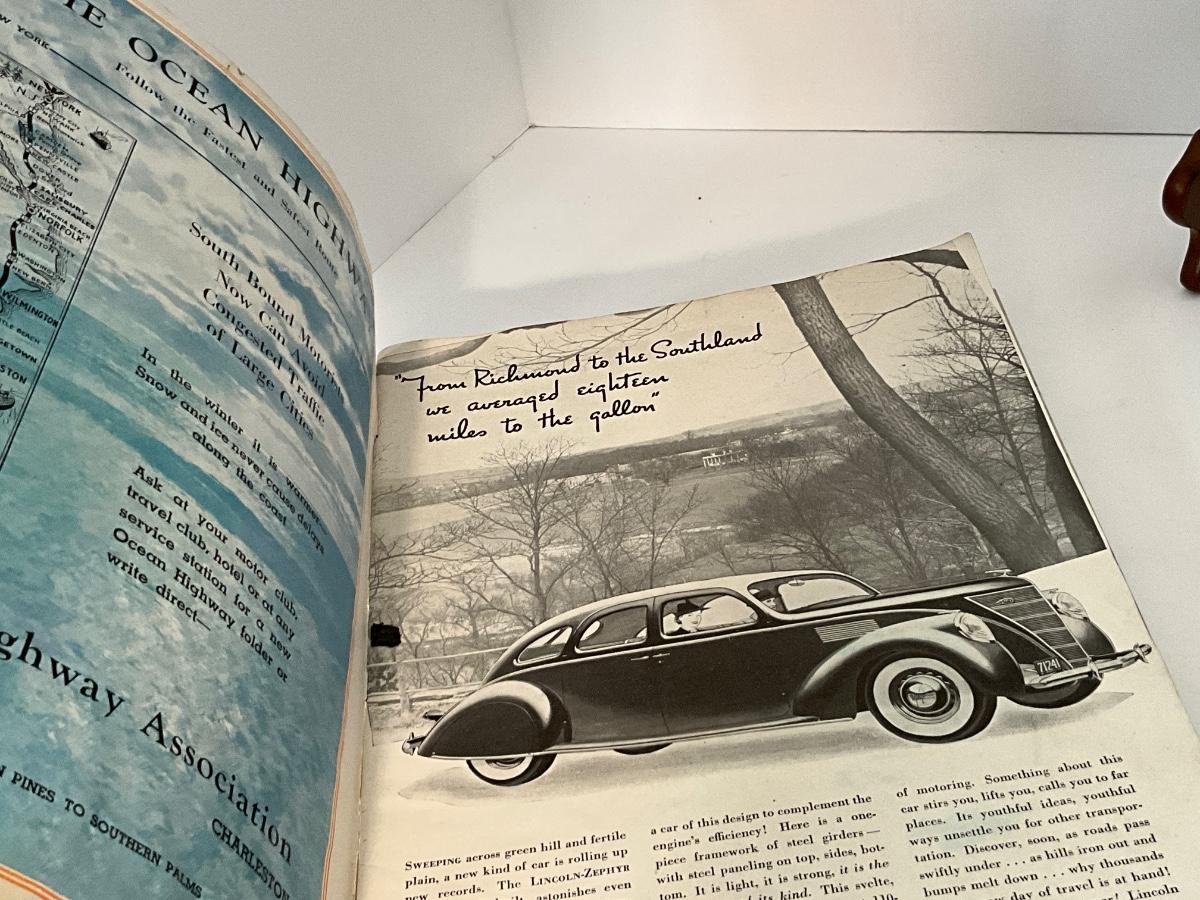 OCEAN HIGHWA
Follow the Fastest and Safest Route
YORK
NEW YORK
NEWARK
SALISBURY
CAPE CHARLES
VIRGINIA BEACH
NORFOLK
ELIZABETH CITY
EDENTON
WASHINGTON
NEW BERN
WILMINGTON
South Bound Motorists
Now Can Avoid
Congested Traffic
of Large Cities
In the winter it is warmer—
Snow and ice never cause delays
along the coast
Ask at your motor club,
travel club, hotel or at any
service station for a new
Ocean Highway folder or
write direct—
ghway Association
CHARLESTON
PINES TO SOUTHERN PALMS
"From Richmond to the Southland
we averaged eighteen
miles to the gallon"
71241
SWEEPING across green hill and fertile
plain, a new kind of car is rolling up
new records. The LINCOLN-ZEPHYR
astonishes even
a car of this design to complement the
engine's efficiency! Here is a one-
piece framework of steel girders—
with steel paneling on top, sides, bot-
tom. It is light, it is strong, it is the
its kind. This svelte,
of motoring. Something about this
car stirs you, lifts you, calls you to far
places. Its youthful ideas, youthful
ways unsettle you for other transpor-
tation. Discover, soon, as roads pass
swiftly under . . . as hills iron out and
bumps melt down . . . why thousands
day of travel is at hand!
Lincoln